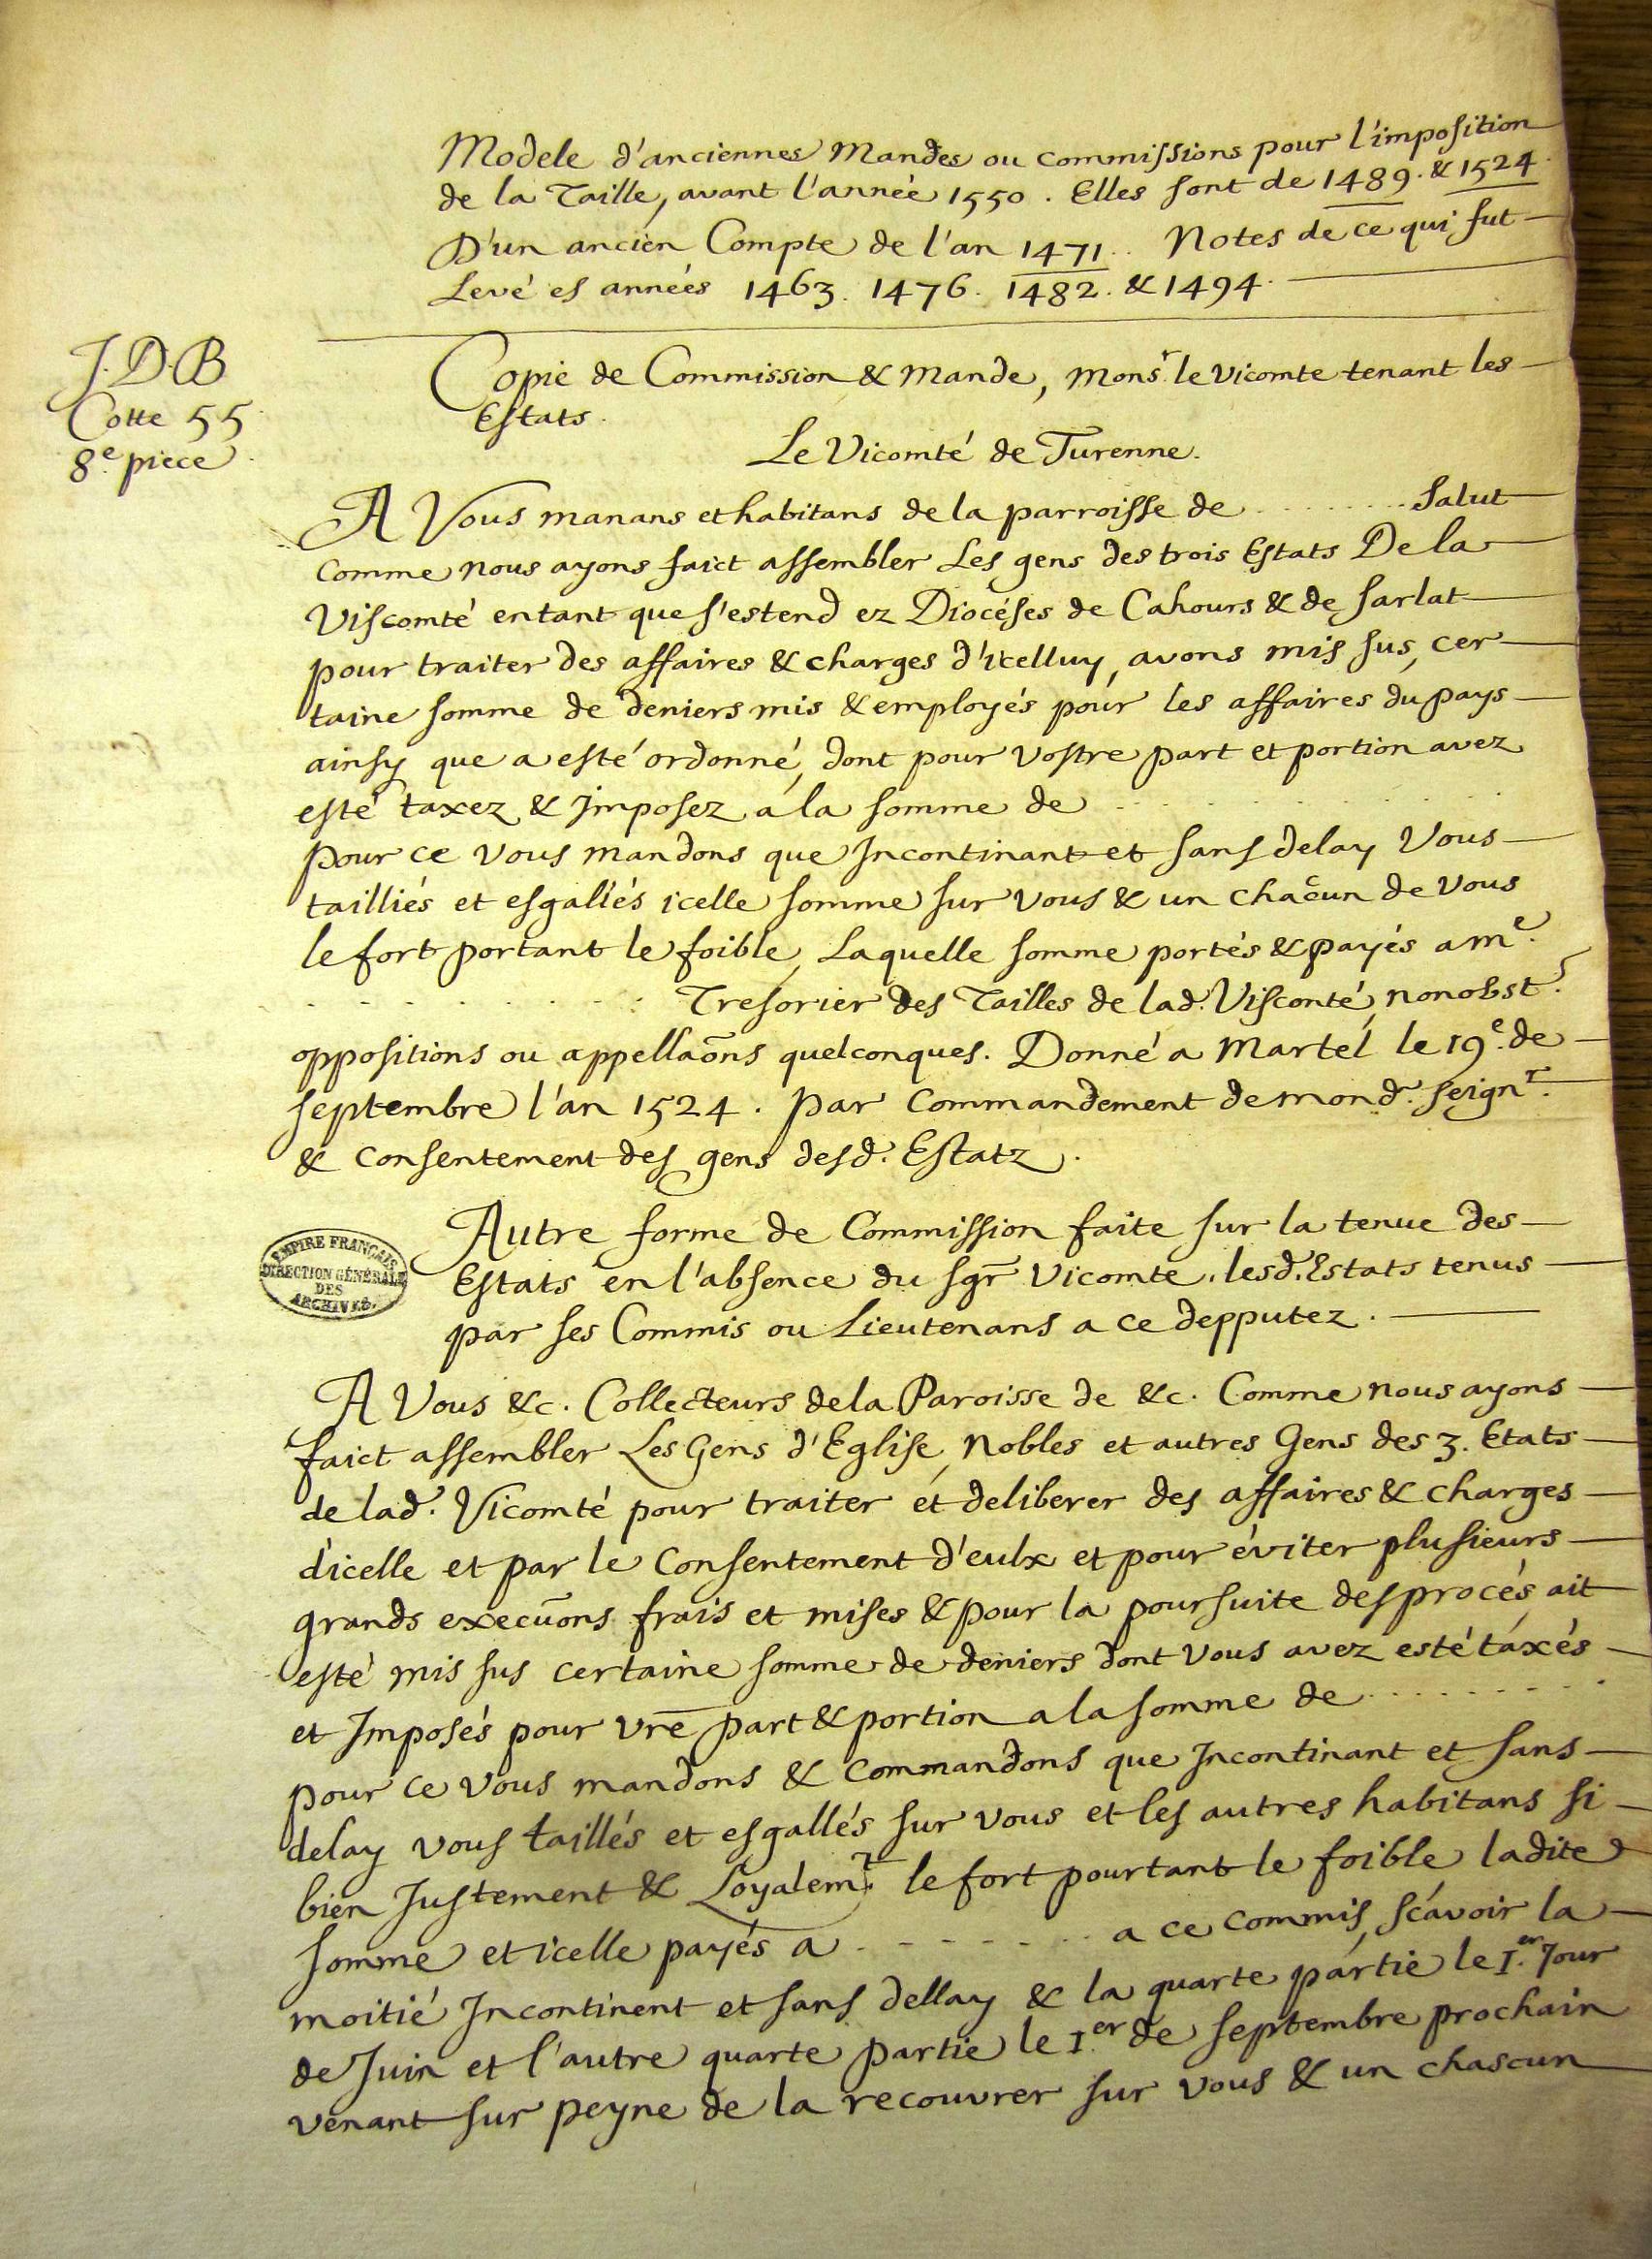 Modele d'anciennes Mandes ou commissions pour l'imposition
de la Taille, avant l'année 1550. Elles sont de 1489. & 1524.
D'un ancien Compte de l'an 1471.. Notes de ce qui fut
Levé es années 1463. 1476. 1482. & 1494.
J.D.B
Cotte 55
8.e piece
Copie de Commission & Mande, Mons.r le Vicomte tenant les
Estats.
Le Vicomté de Turenne.
A Vous manans et habitans de la parroisse de ........ Salut
Comme nous ayons faict assembler Les gens des trois Estats De la
Viscomté entant que s'estend ez Diocéses de Cahours & de Sarlat
pour traiter des affaires & charges d'icelluy, avons mis sus, cer
taine somme de deniers mis & employés pour les affaires du pays
ainsy que a esté ordonné, dont pour Vostre part et portion avez
esté taxez & Imposez a la somme de ........
Pour ce Vous mandons que Incontinant et sans delay Vous
tailliés et esgallés icelle somme sur Vous & un chacun de Vous
le fort portant le foible, Laquelle somme portés & payés a m.e
........ Tresorier des Tailles de lad. Visconté, nonobst.
oppositions ou appellaõns quelconques. Donné a Martel le 19.e de
septembre l'an 1524. Par Commandement de mond. seign.r
& Consentement des gens desd. Estatz.
EMPIRE FRANÇAIS
DIRECTION GÉNÉRALE
DES
ARCHIVES.
Autre forme de Commission faite sur la tenue des
Estats en l'absence du sgr̄ Vicomte, lesd. Estats tenus
par ses Commis ou Lieutenans a ce depputez.
A Vous &c. Collecteurs de la Paroisse de &c. Comme nous ayons
faict assembler Les Gens d'Eglise, Nobles et autres Gens des 3. Etats
de lad. Vicomté pour traiter et deliberer des affaires & charges
d'icelle et par le Consentement d'eulx et pour éviter plusieurs
grands execuõns frais et mises & pour la poursuite des procés, ait
esté mis sus certaine somme de deniers dont Vous avez esté taxés
et Imposés pour vrē part & portion a la somme de ........
pour ce vous mandons & Commandons que Incontinant et sans
delay vous taillés et esgallés sur vous et les autres habitans si
bien Justement & Loyalem.t le fort pourtant le foible ladite
somme et icelle payés a ........ a ce Commis, sçavoir la
moitié Incontinent et sans dellay & la quarte partie le 1.er Jour
de Juin et l'autre quarte Partie le 1.er de septembre prochain
venant sur peyne de la recouvrer sur vous & un chascun